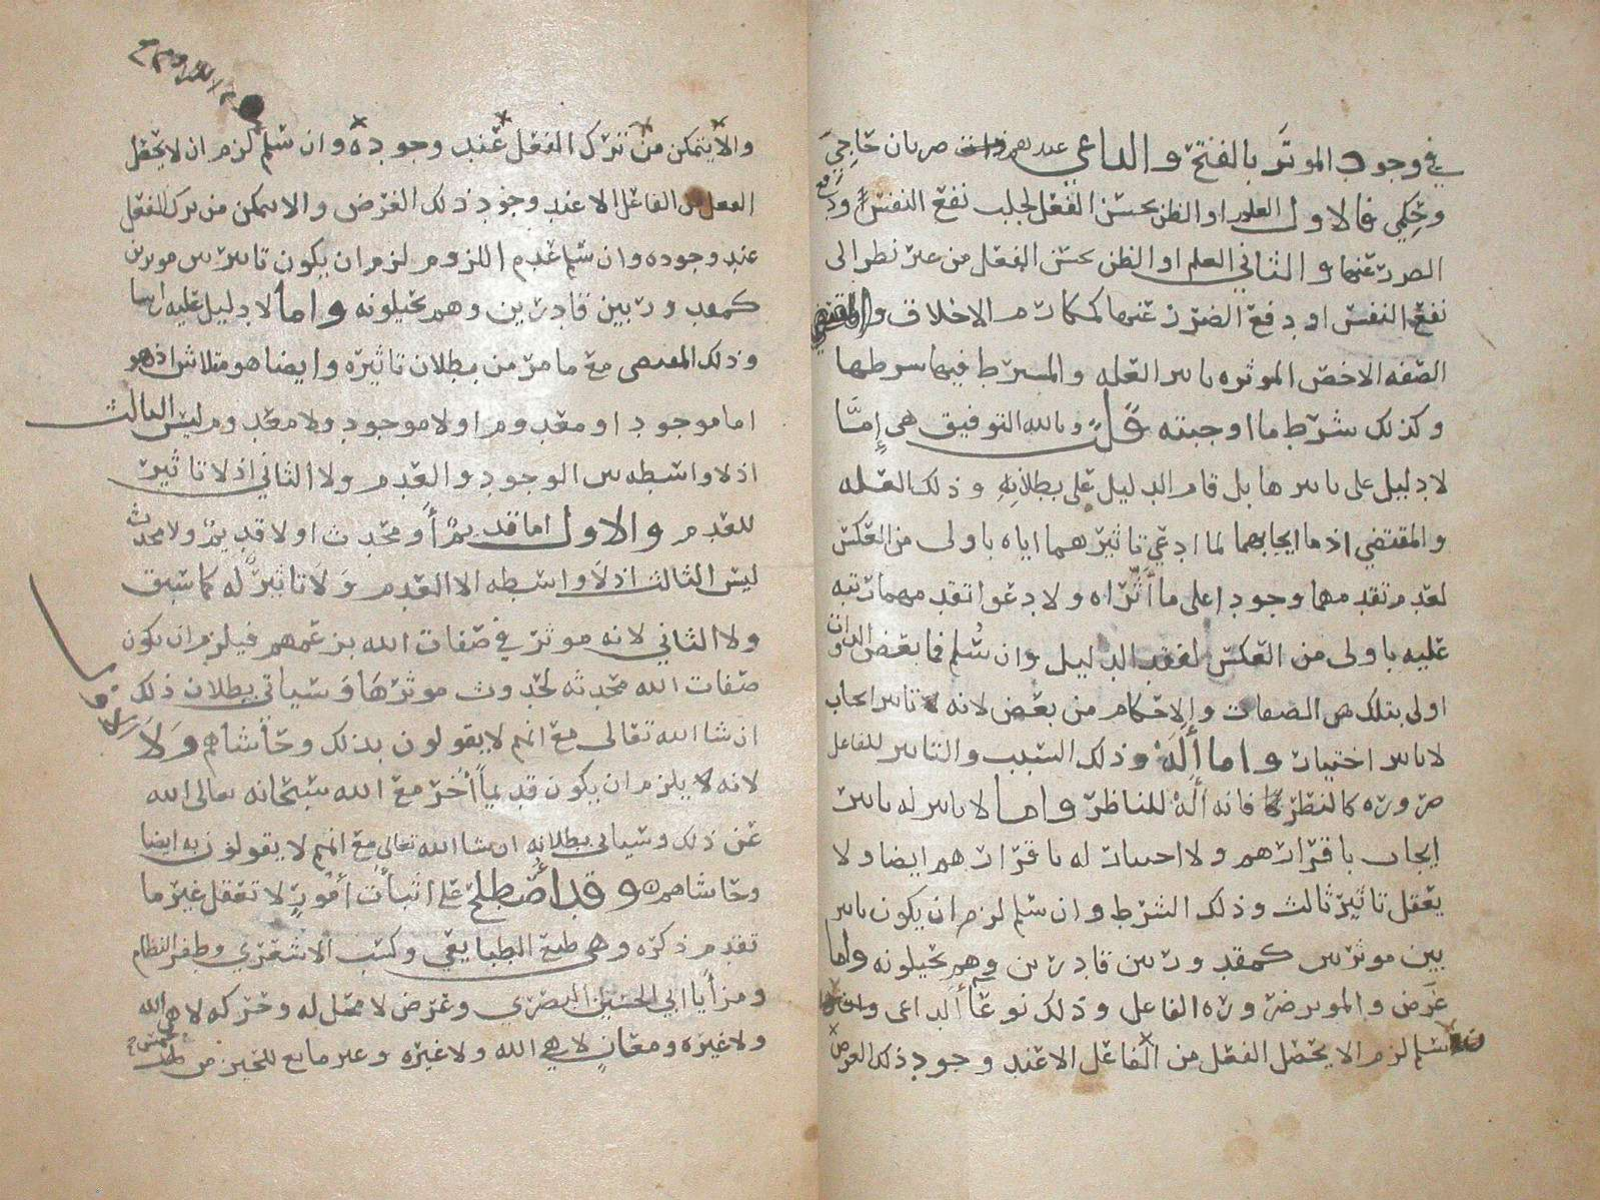 في وجود الموثر بالفتح والداعي عندهم ضربان حاجي
وحكمي فالاول العلم او الظن بحسن الفعل لجلب نفع النفس او دفع
الضرر عنها والثاني العلم او الظن بحسن الفعل من غير نظر الى
نفع النفس او دفع الضرر عنها كمكارم الاخلاق والمقتضي
الصفه الاخص الموثره تاثير العله والمشترط فيها شرطها
وكذلك شرط ما اوجبته قلت وبالله التوفيق هي إمّا
لا دليل على تاثيرها بل قام الدليل على بطلانه وذلك العله
والمقتضي اذ ما ايجابهما لما ادعي تاثيرهما اياه باولى من العكس
لعدم تقدمهما وجودا على ما أثّراه ولا دعوا تقدمهما رتبه
عليه باولى من العكس لفقد الدليل وان سُلم فما بعض الذوات
اولى بتلك من الصفات والاحكام من بعض لانه تاثير ايجاب
لا تاثير اختيار واما أله وذلك السبب والتاثير للفاعل
ضروره كالنظر فانه أله للناظر واما لا تاثير له تاثير
ايجاب باقرارهم ولا اختيار له باقرارهم ايضا ولا
يعقل تاثير ثالث وذلك الشرط وان سلم لزم ان يكون تاثير
بين موثرين كمقدور بين قادرين وهم يحيلونه واما
غرض والموثر ضروره الفاعل وذلك نوعا الداعي وان
سلم لزم الا يحصل الفعل من الفاعل الا عند وجود ذلك الغرض
والا يتمكن من ترك الفعل عند وجوده وان سلم لزم ان لا يحصل
الفعل من الفاعل الا عند وجود ذلك الغرض والا يتمكن من ترك الفعل
عند وجوده وان سلم عدم اللزوم لزم ان يكون تاثير بين موثرين
كمقدور بين قادرين وهم يحيلونه واما لا دليل عليه راسا
وذلك المقتضى مع ما مر من بطلان تاثيره وايضا هو متلاش اذ هو
اما موجود او معدوم او لا موجود ولا معدوم ليس الثالث
اذ لا واسطه بين الوجود والعدم ولا الثاني اذ لا تاثير
للعدم والاول اما قديم أو محدث او لا قديم ولا محدث
ليس الثالث اذ لا واسطه الا العدم ولا تاثير له كما سبق
ولا الثاني لانه موثر في صفات الله بزعمهم فيلزم ان يكون
صفات الله محدثه لحدوث موثرها وسياتي بطلان ذلك
ان شا الله تعالى مع انهم لا يقولون بذلك وحاشاهم ولا
لانه يلزم ان يكون قديماً أخر مع الله سبحانه تعالى الله
عن ذلك وسياتي بطلانه ان شا الله تعالى مع انهم لا يقولون به ايضا
وحاشاهم وقد أصطلح على اثبات أمور لا تعقل غير ما
تقدم ذكره وهي طبع الطبايعي وكسب الاشعري وطفر النظام
ومزايا ابي الحسين البصري وعرض لا محل له وحركه لا هي الله
ولا غيره ومعان لا هي الله ولا غيره وغير مانع للحيز من